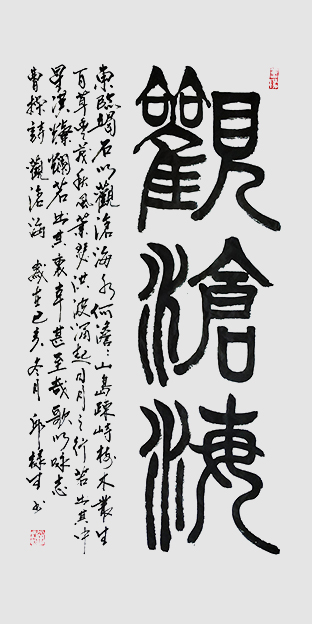 觀滄海
東臨碣石以觀滄海水何澹〻山島疎峙樹木叢生
百草豐茂秋風蕭瑟洪波涌起日月之行若出其中
星漢燦爛若出其裏幸甚至哉歌以咏志
曹操詩觀滄海歲在己亥冬月邱祿生书